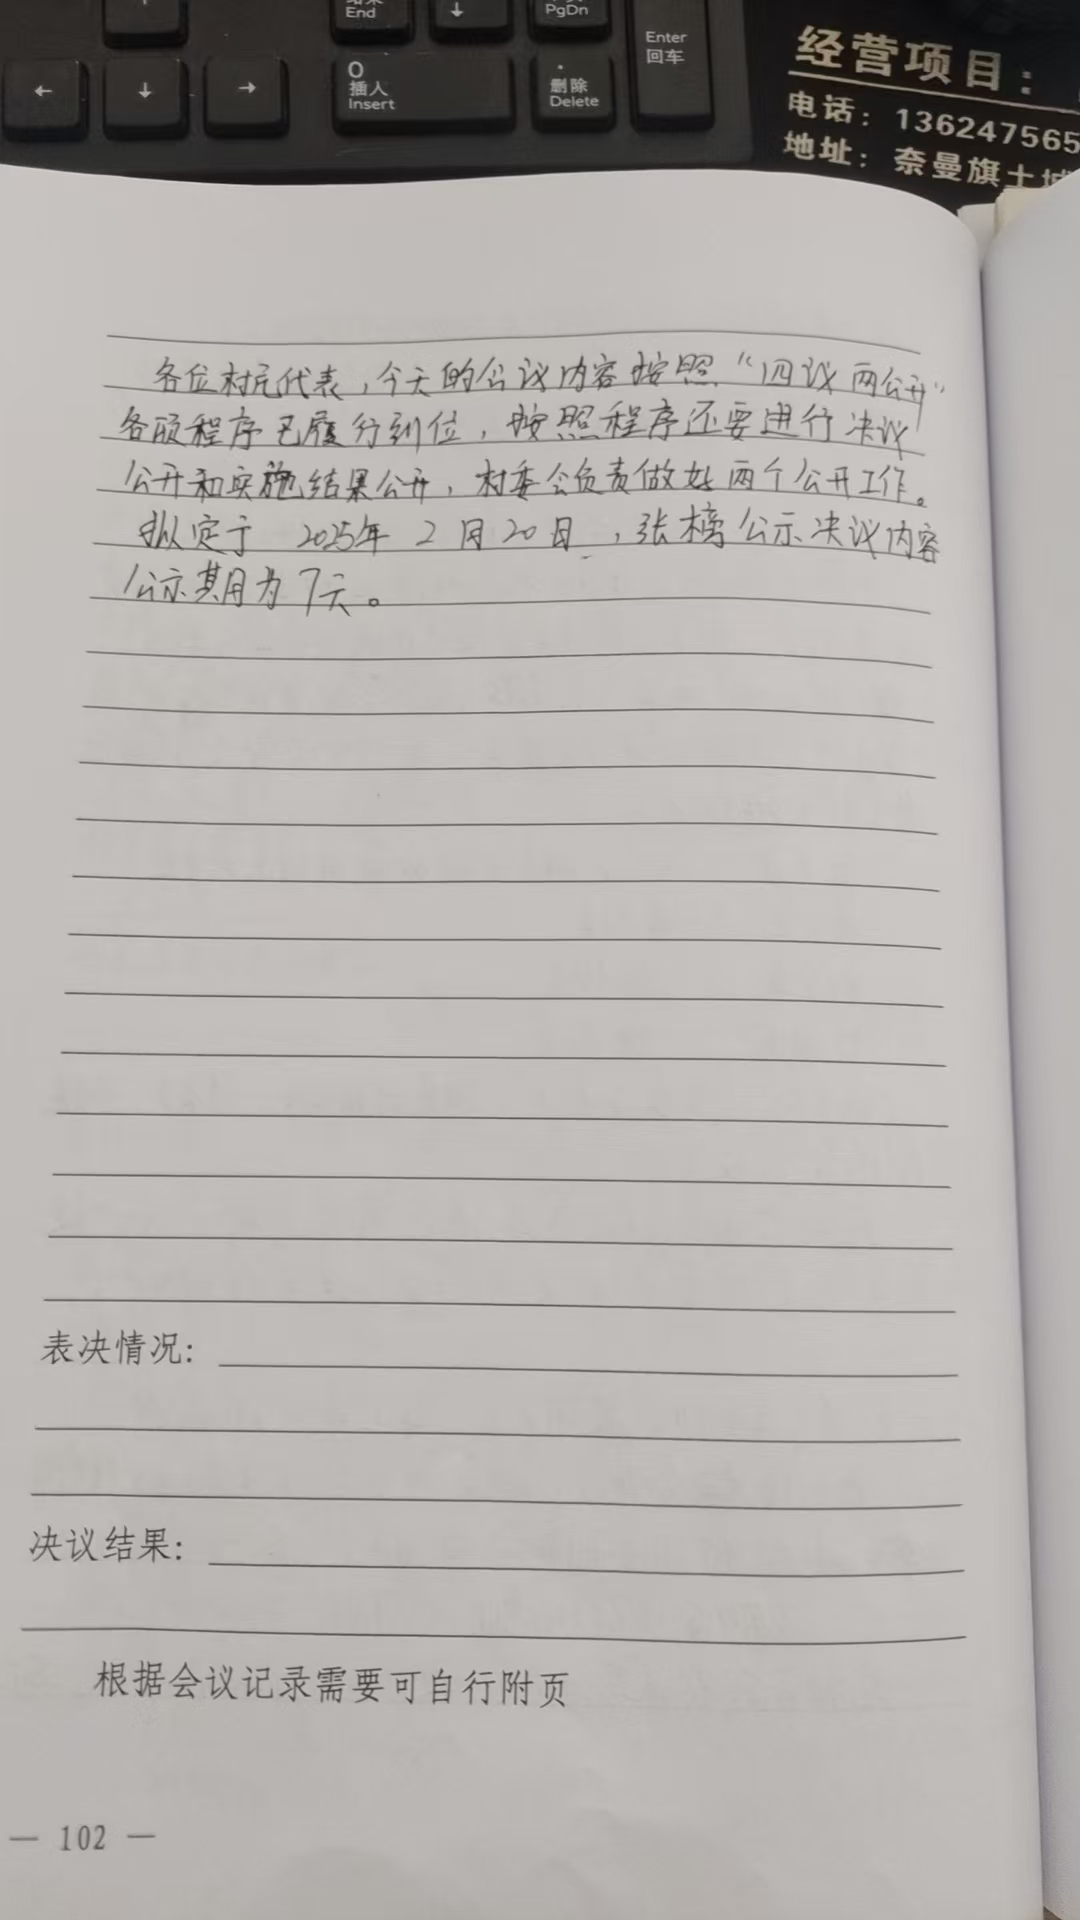 End
PgDn
Enter
回车
0
插入
Insert
删除
Delete
经营项目：
电话：136247565
地址：奈曼旗土城
各位村民代表，今天的会议内容按照“四议两公开”
各项程序已履行到位，按照程序还要进行决议
公开和实施结果公开，村委会负责做好两个公开工作。
拟定于 2025年 2月20日，张榜公示决议内容
公示期为7天。
表决情况:
决议结果:
根据会议记录需要可自行附页
— 102 —